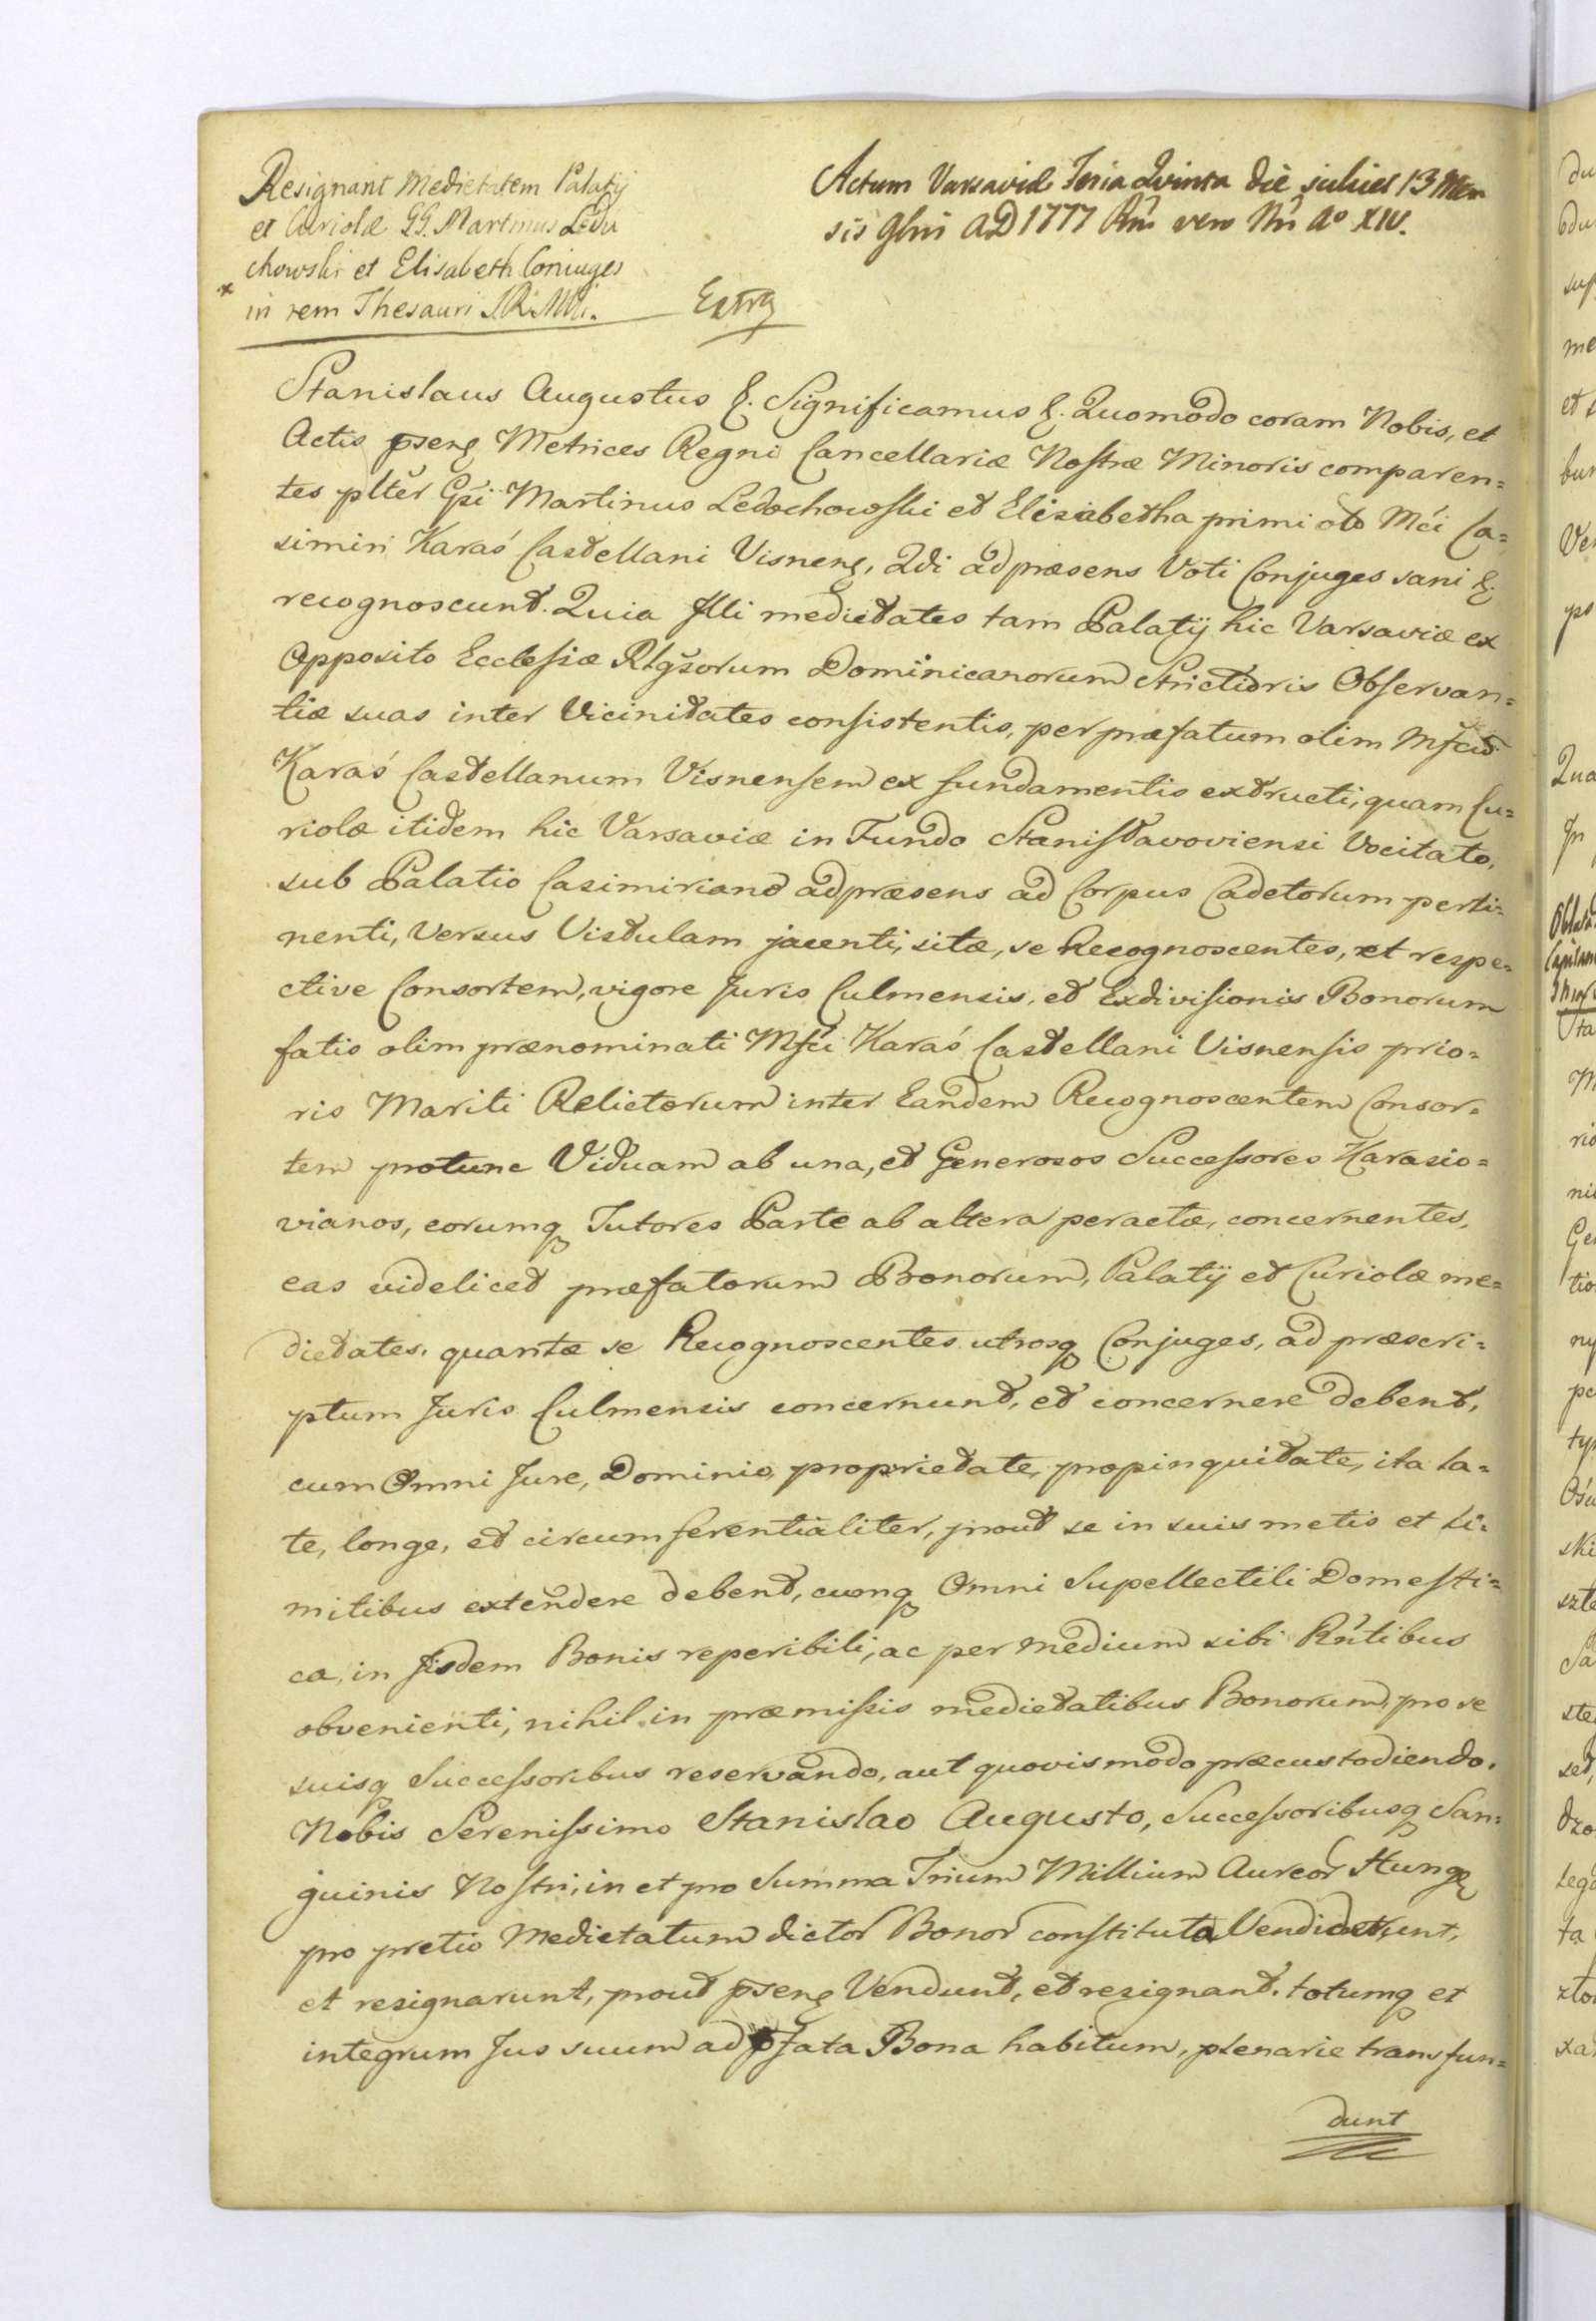 Resignant Medietatem Palatij
et Curiolæ GG. Martinus Ledu
chowski et Elisabeth Coniuges
in rem Thesauri S.R.Mtti.
Extrg
Actum Varsaviæ Feria Quinta die scilicet 13 Men
sis 9bris AD 1777 Rni vero Nri Aº XIV.
Stanislaus Augustus &. Significamus &. Quomodo coram Nobis, et
Actis pseng Metrices Regni Cancellariæ Nostræ Minoris comparen=
tes plter Gsi Martinus Ledochowski et Elisabetha primi oto Mci Ca=
simiri Karaś Castellani Visneng, 2di ad præsens Voti Conjuges sani &.
recognoscunt. Quia Illi medietates tam Palatij hic Varsaviæ ex
Opposito Ecclesiæ Rlgsorum Dominicanorum Strictioris Observan=
tiæ suas inter Vicinitates consistentis, per præfatum olim Mfcum
Karaś Castellanum Visnensem ex fundamentis extructi, quam Cu=
riolæ itidem hic Varsaviæ in Fundo Stanisłavoviensi Vocitato,
sub Palatio Casimiriano ad præsens ad Corpus Cadetorum perti=
nenti, Versus Vistulam jacenti, sitæ, se Recognoscentes, et respe=
ctive Consortem, vigore Juris Culmensis, et Exdivisionis Bonorum
fatis olim prænominati Mfci Karaś Castellani Visnensis prio=
ris Mariti Relictorum inter Eandem Recognoscentem Consor=
tem protunc Viduam ab una, et Generosos Successores Karasio=
vianos, eorumq Tutores Parte ab altera peractæ, concernentes,
eas videlicet præfatorum Bonorum, Palatij et Curiolæ me=
dietates, quantæ se Recognoscentes utrosq Conjuges, ad præscri=
ptum Juris Culmensis concernunt, et concernere debent,
cum Omni Jure, Dominio, proprietate, propinquitate, ita la=
te, longe, et circumferentialiter, prout se in suis metis et li=
mitibus extendere debent, cumq Omni Supellectili Domesti=
ca, in Iisdem Bonis reperibili, ac per medium sibi Rntibus
obvenienti, nihil in præmissis medietatibus Bonorum, pro se
suisq Successoribus reservando, aut quovis modo præcustodiendo.
Nobis Serenissimo Stanislao Augusto, Successoribusq San=
guinis Nostri, in et pro Summa Trium Millium Aureor Hung
pro pretio Medietatum dictor Bonor constituta Vendiderunt,
et resignarunt, prout pseng Vendunt, et resignant. totumq et
integrum Jus suum ad pfata Bona habitum, plenarie transfun=
dunt